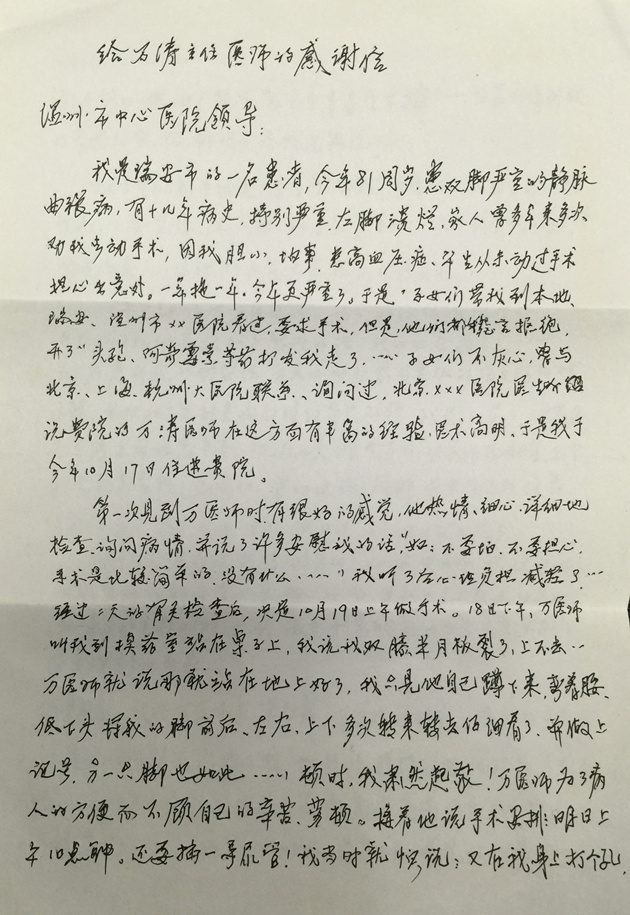 给万涛主任医师的感谢信
温州市中心医院领导:
我是瑞安市的一名患者,今年81周岁,患双脚严重的静脉
曲张病,有十几年病史,特别严重.左脚溃烂,家人曾多年来多次
劝我去动手术,因我胆小,怕事,患高血压症、平生从未动过手术
担心出意外。一年拖一年,今年更严重了。于是子女们带我到本地、
瑞安、温州市××医院看过,要求手术,但是,他们都婉言拒绝,
开了"头孢、阿莫灵等药打发我走了……子女们不灰心,曾与
北京、上海、杭州大医院联系、询问过,北京.×××医院医生介绍
说贵院的万涛医师在这方面有丰富的经验,医术高明、于是我于
今年10月17日住进贵院。
第一次见到万医师时有很好的感觉,他热情、细心、详细地
检查.询问病情.并说了许多安慰我的话,"如:不要怕.不要担心,
手术是比较简单的.没有什么……"我听了后心理负担减轻了…
经过二天的有关检查后,决定10月19日上午做手术。18日下午,万医师
叫我到换药室站在桌子上,我说我双膝半月板裂了,上不去…
万医师就说那就站在地上好了,我只见他自己蹲下来,弯着腰、
低下头将我的脚前后、左右、上下多次转来转去仔细看了.并做上
记号,另一只脚也如此……顿时,我肃然起敬!万医师为了病
人的方便而不顾自己的辛苦、劳顿。接着他说手术安排:明日上
午10点钟。还要插一导尿管!我当时就惊说:又在我身上打个孔,